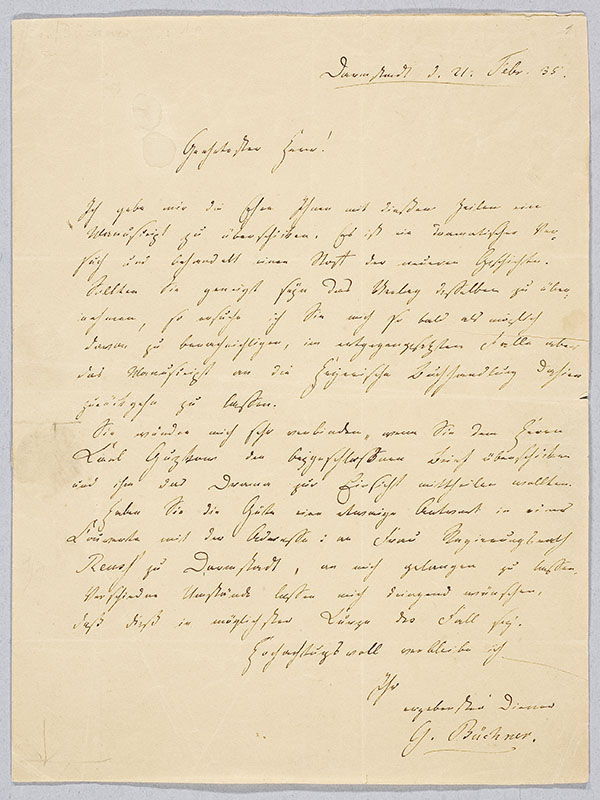 Darmstadt d. 21. Febr. 35.
Geehrtester Herr!
Ich gebe mir die Ehre Ihnen mit diesen Zeilen ein
Manuscript zu überschicken. Es ist ein dramatischer Ver-
such und behandelt einen Stoff der neueren Geschichte.
Sollten Sie geneigt seyn das Verlag desselben zu über-
nehmen, so ersuche ich Sie mich so bald als möglich
davon zu benachrichtigen, im entgegengesetzten Falle aber
das Manuscript an die Heyerische Buchhandlung dahier
zurückgehn zu lassen.
Sie würden mich sehr verbinden, wenn Sie dem Herrn
Karl Gutzkow den beigeschlossnen Brief überschicken
und ihm das Drama zur Einsicht mittheilen wollten.
Haben Sie die Güte eine etwaige Antwort in einer
Couverte mit der Adresse: an Frau Regierungsrath
Reuss zu Darmstadt, an mich gelangen zu lassen.
Verschiedne Umstände lassen mich dringend wünschen,
daß dieß in möglichster Kürze der Fall sey.
Hochachtungsvoll verbleibe ich
Ihr
ergebenster Diener
G. Büchner.